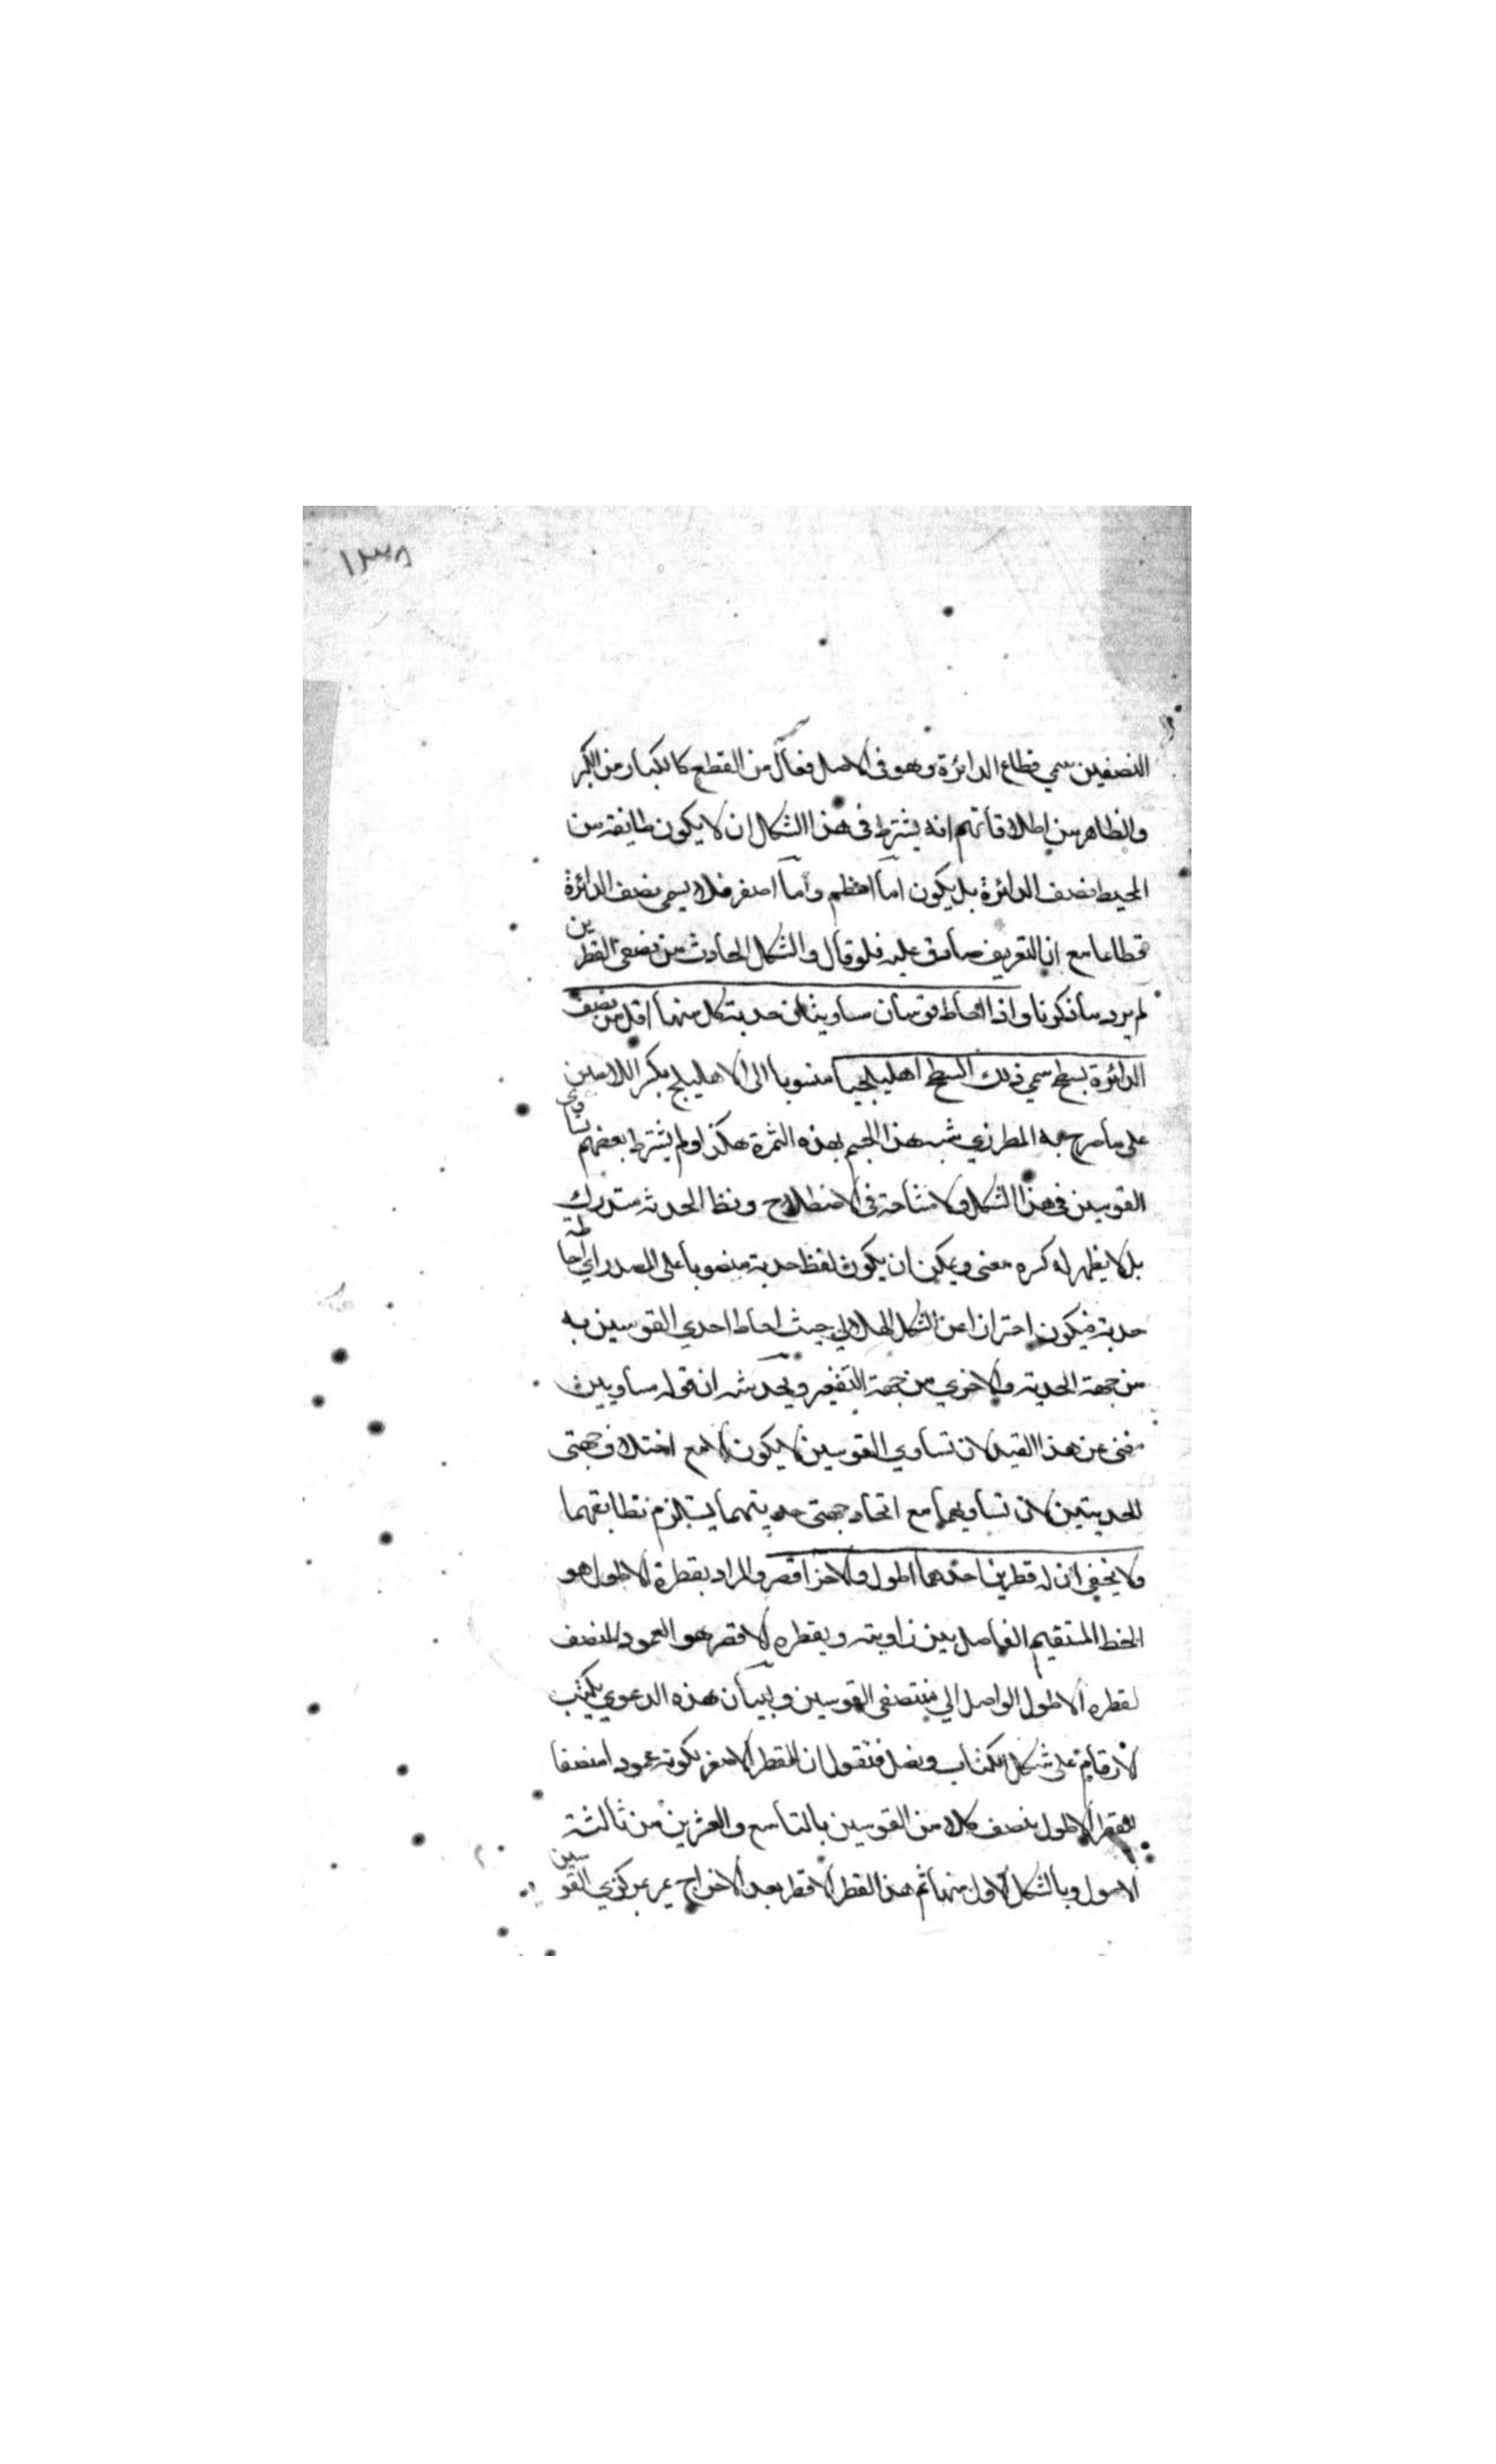 ١٣٨
النصفين سمي قطاع الدائرة وهو في الاصل فعال من القطع كالكبار من الكبر
والظاهر من اطلاقاتهم انه يشترط في هذا الشكل ان لا يكون طايفة من
المحيط نصف الدائرة بل يكون اما اعظم واما اصغر فلا يسمى نصف الدائرة
قطاعا مع ان التعريف صادق عليه فلو قال والشكل الحادث من نصفي القطرين
لم يرد ما ذكرنا واذا احاط قوسان متساويتان حدبة كل منهما اقل من نصف
الدائرة بسطح سمي ذلك السطح اهليلجيا منسوبا الى الاهليلج بكسر اللامين
على ما صرح به المطرزي شبه هذا الجسم بهذه الثمرة هكذا ولم يشترط بعضهم تساوي
القوسين في هذا الشكل ولا مشاحة في الاصطلاح ولفظ الحدبة مستدرك
بل لا يظهر لذكره معنى ويمكن ان يكون لفظ حدبة منصوبا على المصدر اي احاطة
حدبة فيكون احترازا عن الشكل الهلالي حيث احاط احدي القوسين به
من جهة الحدبة والاخري من جهة التقعير ويخدشه ان قوله متساويين
مغني عن هذا القيد لان تساوي القوسين لا يكون الا مع اختلاف جهتي
الحدبتين لان تساويهما مع اتحاد جهتي حدبتهما يستلزم تطابقهما
ولا يخفى ان له قطرين احدهما اطول والاخر اقصر والمراد بقطره الاطول هو
الخط المستقيم الفاصل بين زاويته وبقطره الاقصر هو العمود المنصف
لقطره الاطول الواصل الي منتصفي القوسين وبيان هذه الدعوي يكتب
الارقام على شكل الكتاب ونصل فنقول ان القطر الاصغر لكونه عمودا منصفا
للقطر الاطول ينصف كلا من القوسين بالتاسع والعشرين من ثالثة
الاصول وبالشكل الاول منها ثم هذا القطر الاقصر بعد الاخراج يمر بمركزي القوسين